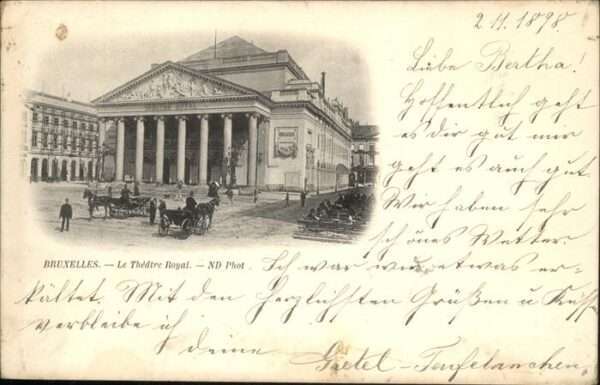 2 11. 1898
Liebe Bertha!
Hoffentlich geht
es dir gut mir
geht es auch gut.
Wir haben sehr
schönes Wetter.
BRUXELLES. — Le Théâtre Royal. — ND Phot.
Ich war etwas er-
kältet. Mit den Herzlichsten Grüßen u Küssen
verbleibe ich
deine Gretel-Teufelinchen.